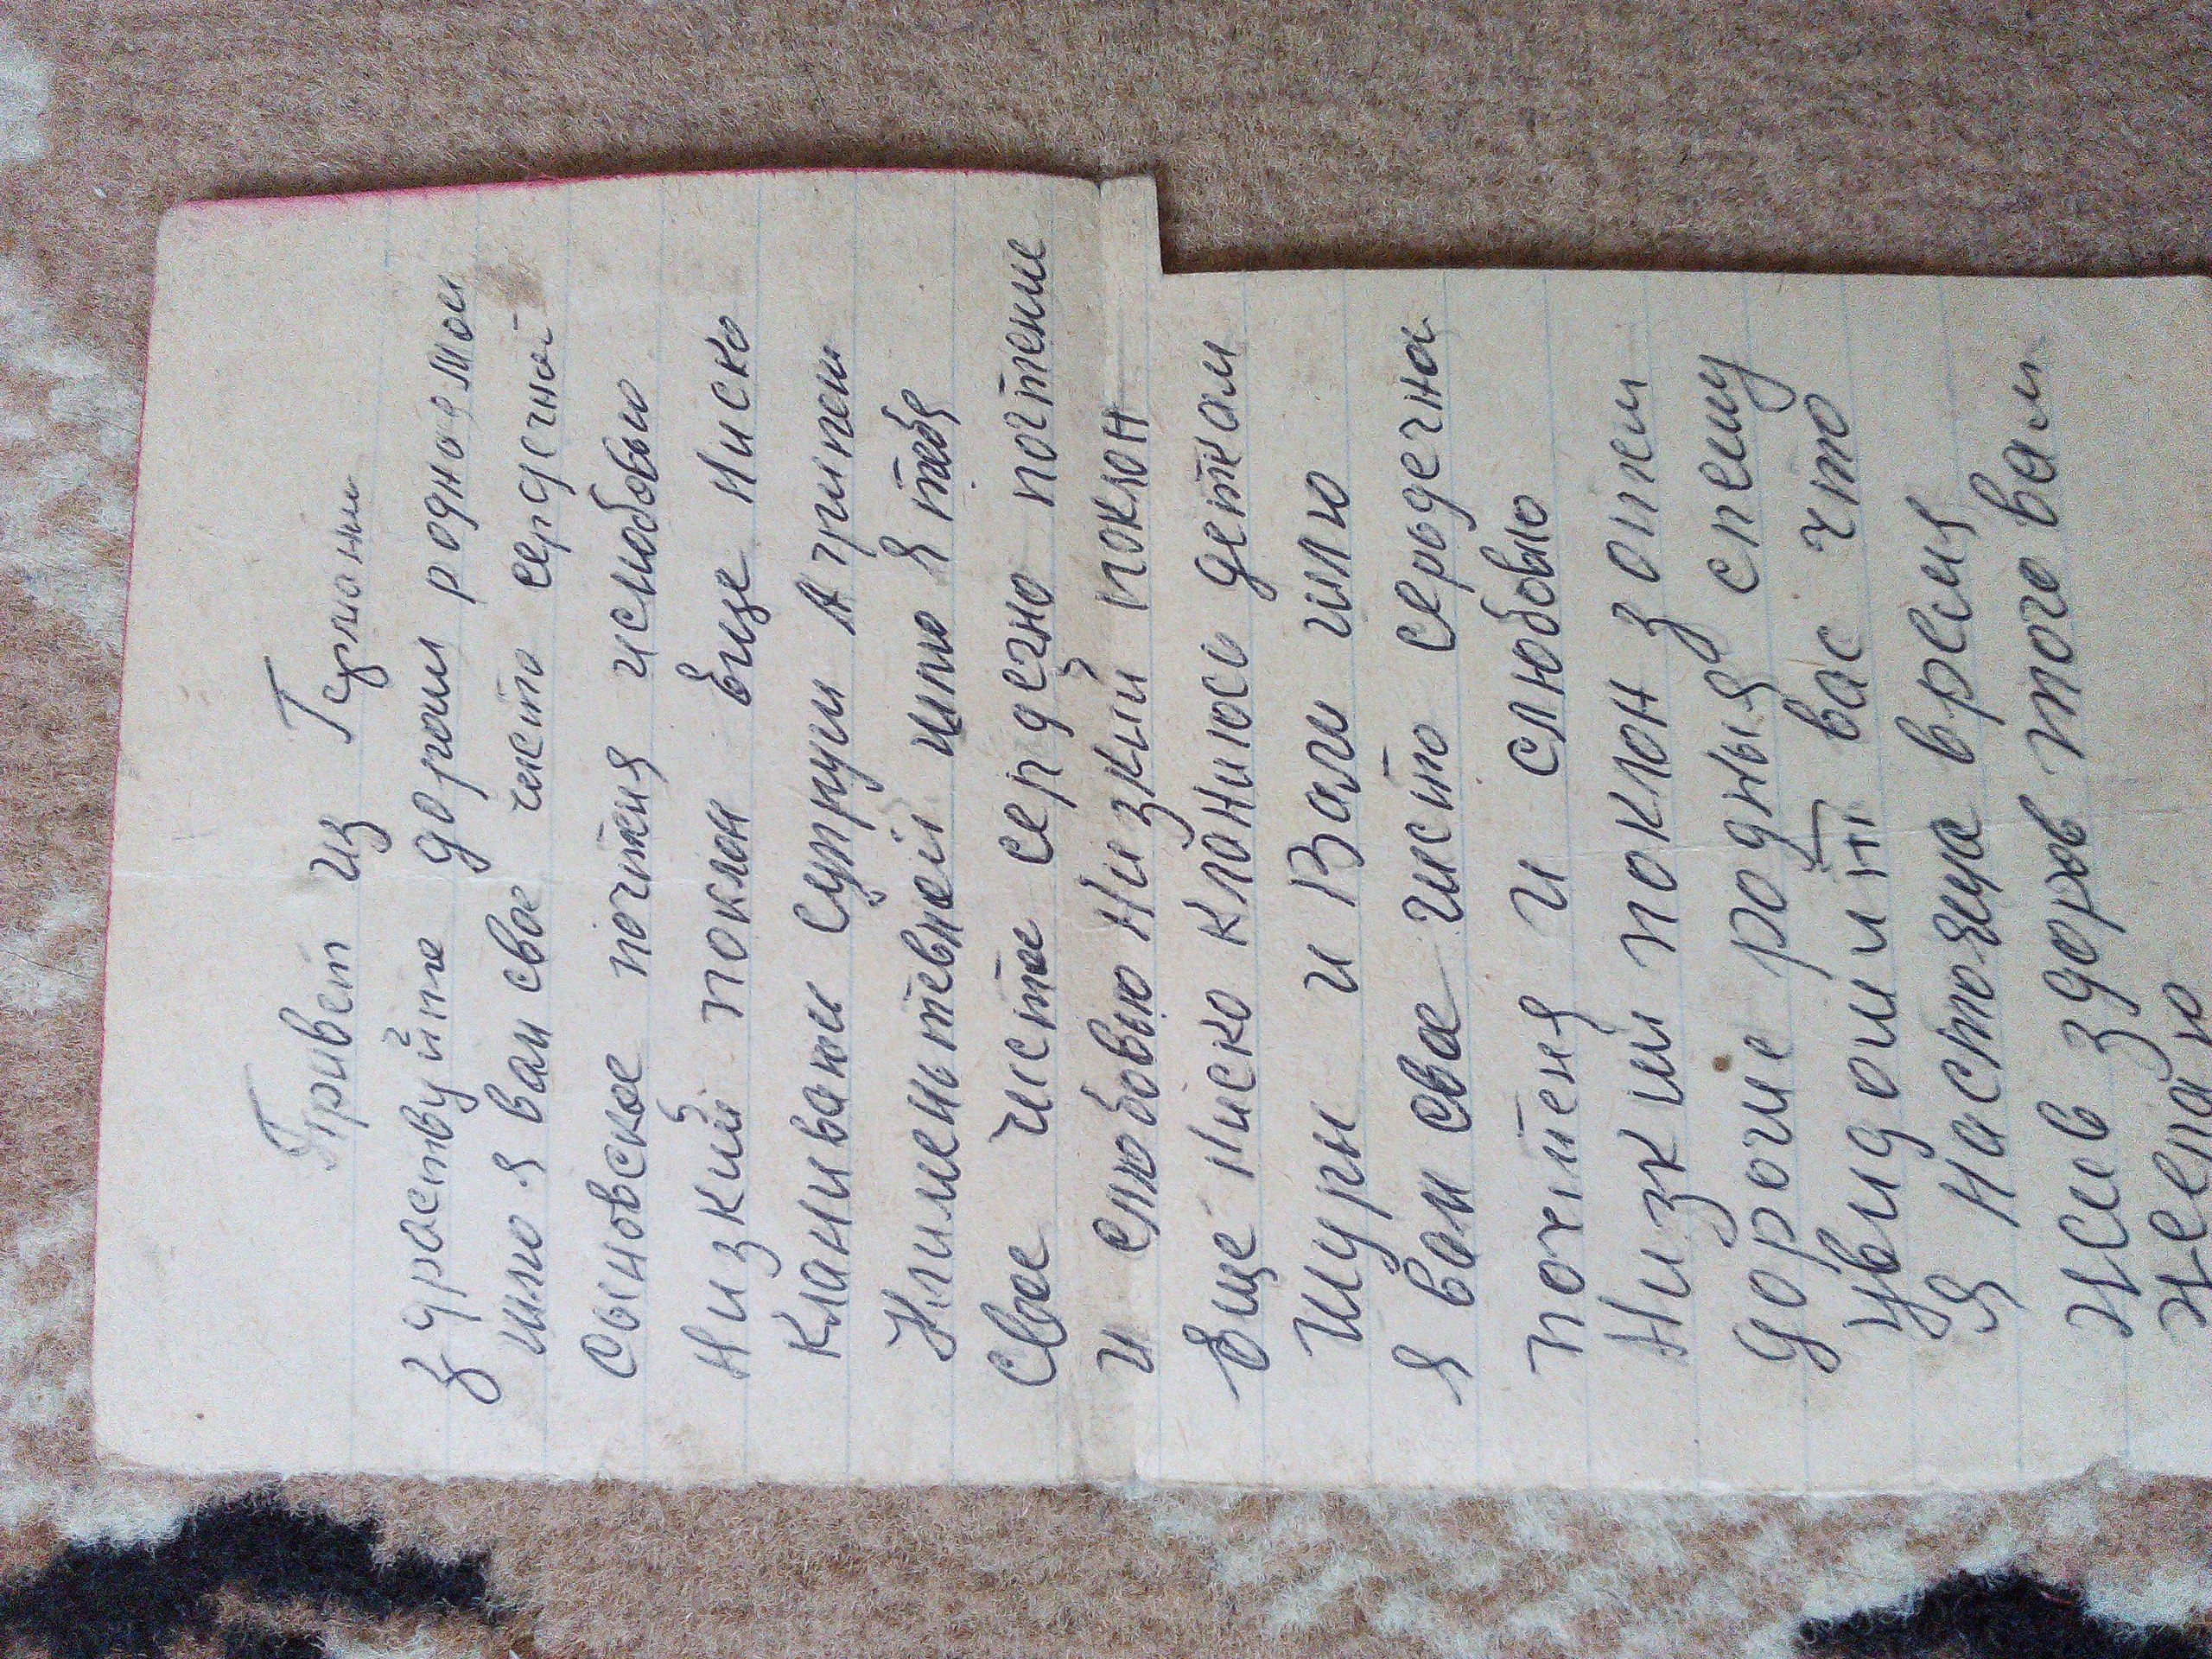 Привет из Германи
здраствуйте дорогои родная мои
шлю я вам свое чисто сердечной
сыновское почтения ислюбовью
Низкий поклон Еще Ниско
кланиваюи супруги Агрипени
Климентевней шлю я тебя
Свое чисто сердечно почтение
и слюбовью Низкий поклон
Еще Ниско кланиюсь деткам
Шуры и Вали шлю
я вам свае чисто серодечна
почтеня и слюбовью
Низкии поклон зотем
дорогие родныя спешу
уведомить вас что
я настояща время
жив здоров того вам
желаю